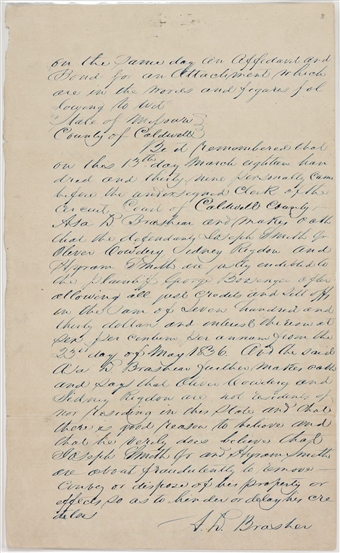 on the same day an Affidavit and
Bond for an Attachment which
are in the words and figures fol
lowing to wit
State of Missouri
County of Caldwell
Be it remembered that
on this 13th day March eighteen hun
dred and thirty nine personally came
before the undersigned Clerk of the
Circuit Court of Caldwell County
Asa D Brashear and makes oath
that the defendants Joseph Smith Jr
Oliver Cowdery Sidney Rigdon and
Hyrum Smith are justly indebted to
the plaintiff George after
allowing all just credits and sett offs
in the sum of Seven hundred and
thirty dollars and interest thereon at
per centum per annum from the
23rd day of May 1836. And the said
Asa D Brashear further makes oath
and says that Oliver Cowdery and
Sidney Rigdon are not residents of
nor residing in this State and that
there is good reason to believe and
that he verily does believe that
Joseph Smith Jr and Hyrum Smith
are about fraudulently to remove
convey or dispose of their property or
effects so as to hinder or delay their cre
ditors
A. D. Brasher